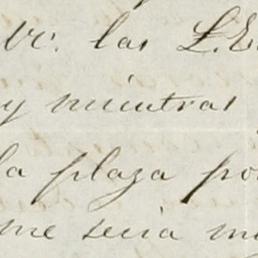 Vc. las L.E
y mientras
la plaza po
me seria m